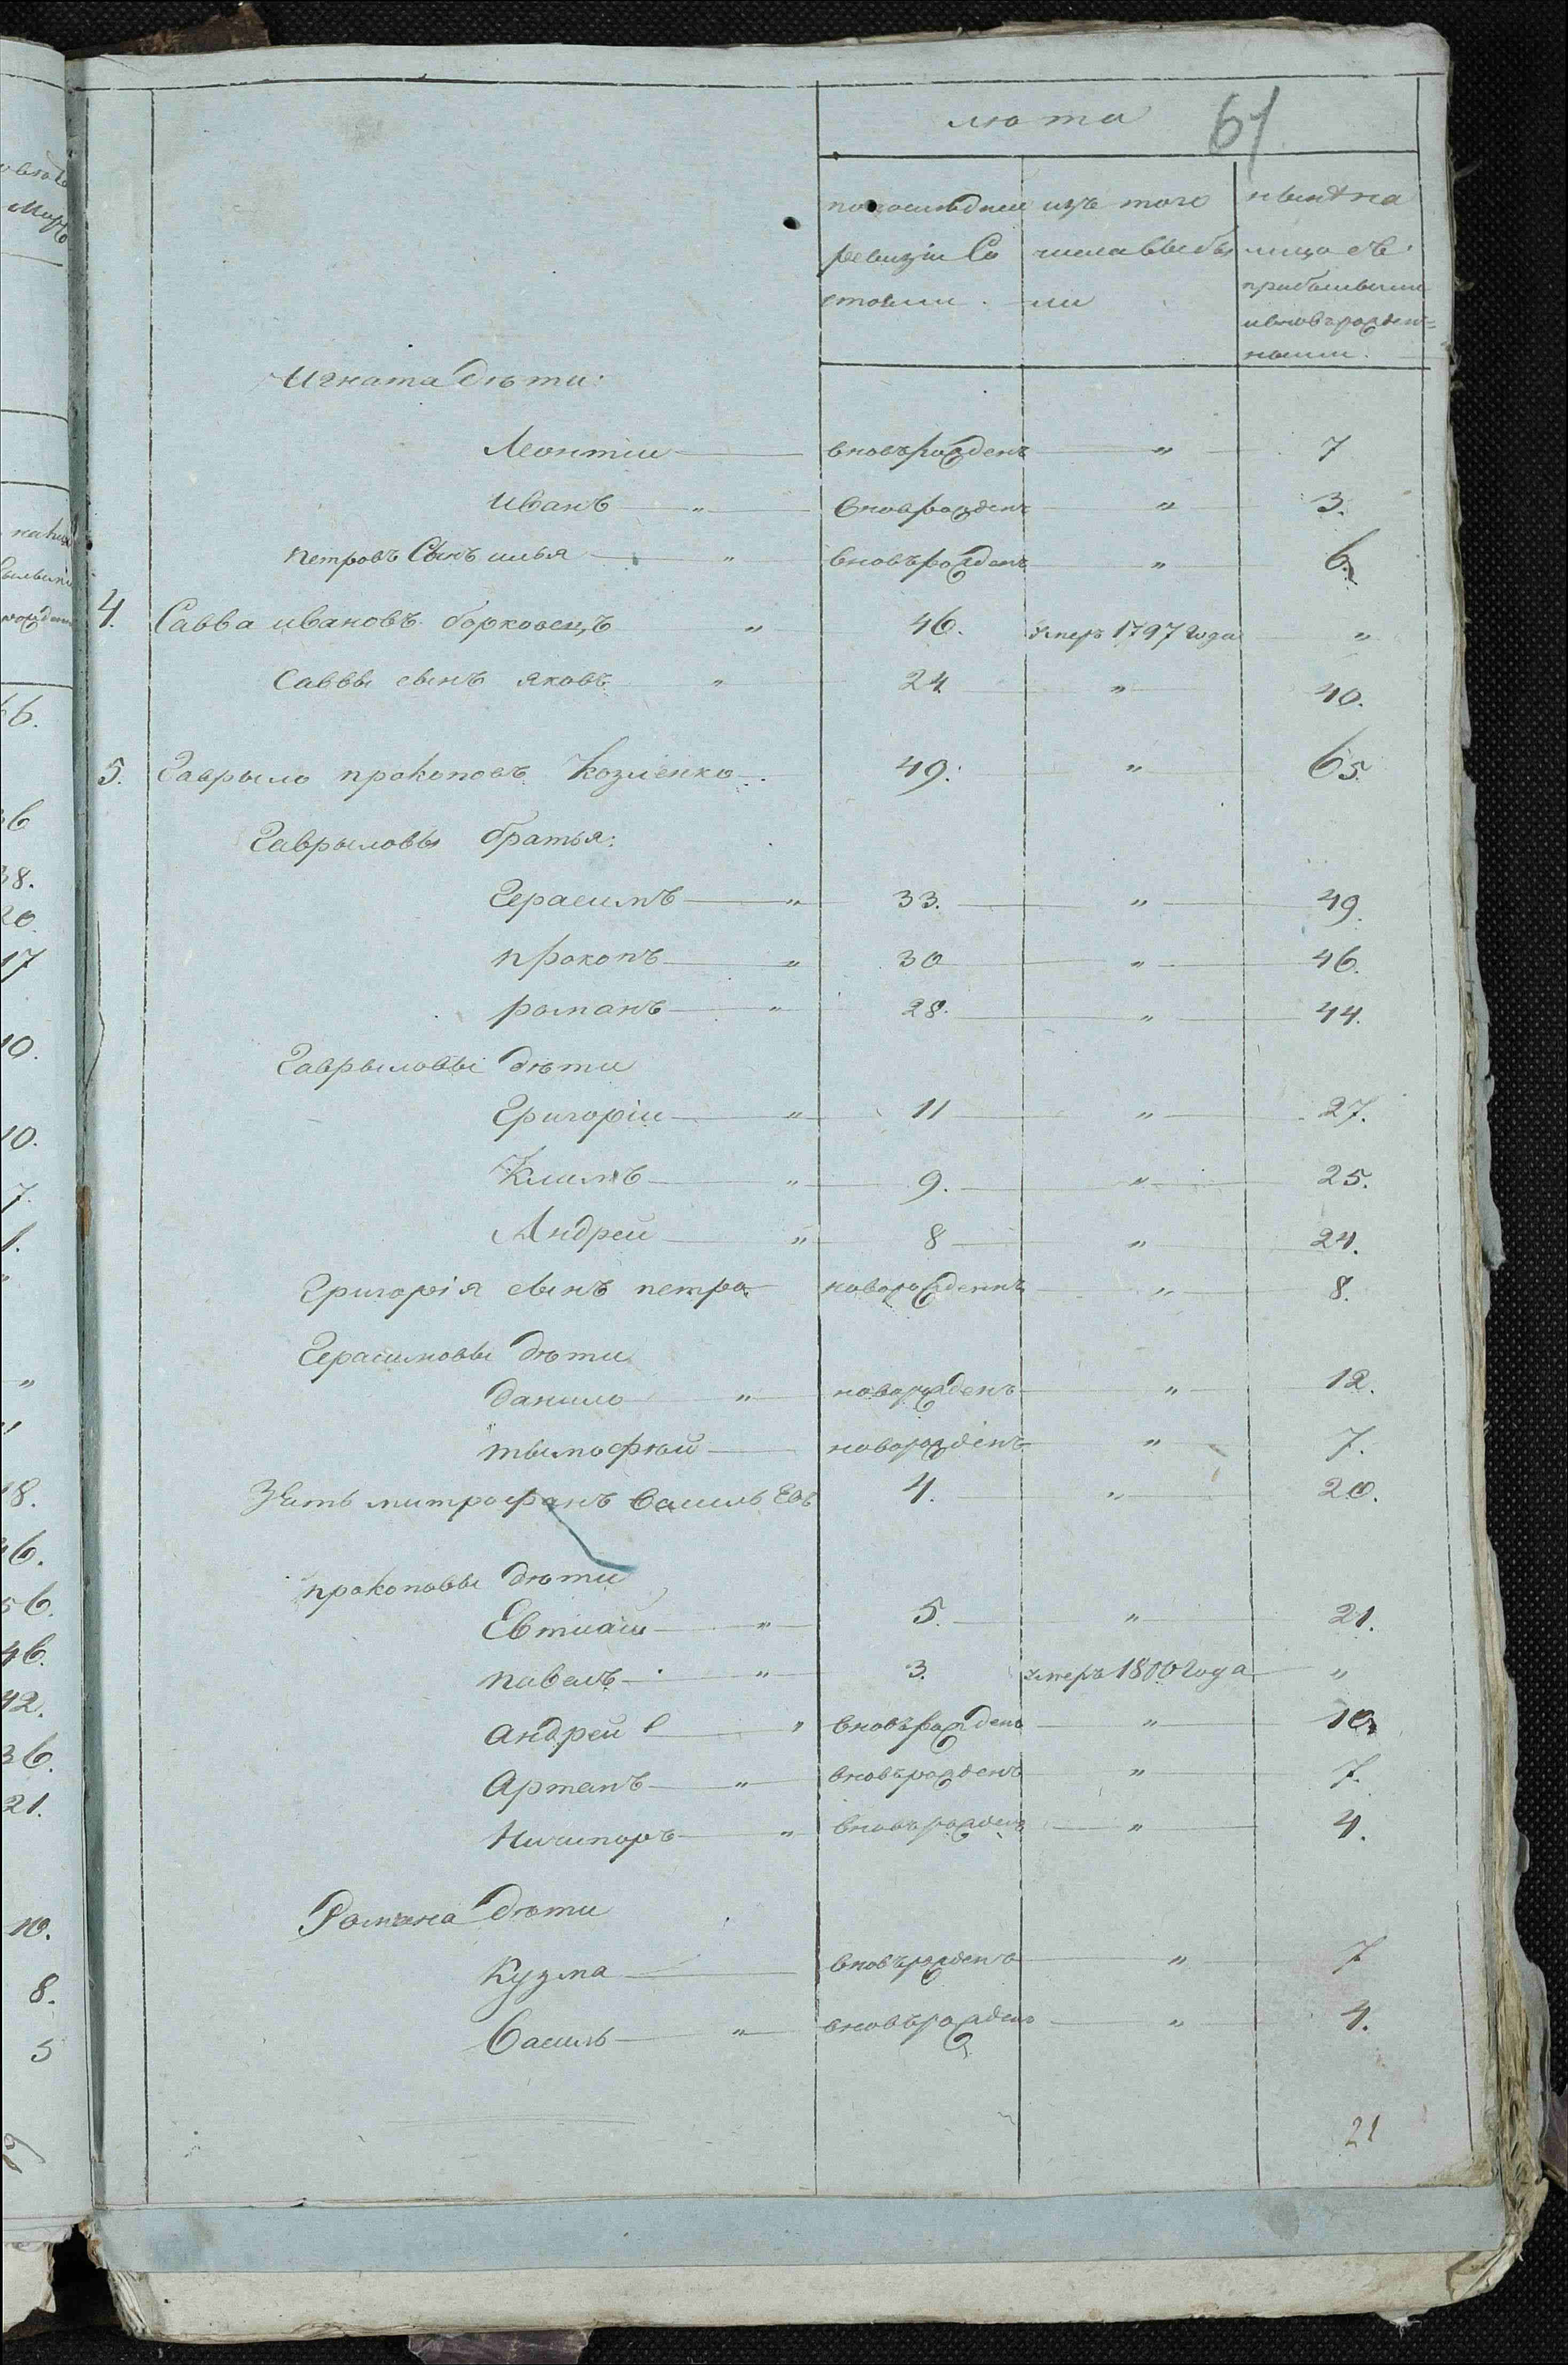 лѣта 61
попослѣднеи изъ того нынѣ на
ревизіи Со числа выбы лицо съ
стояли. ли прибылыми
ивновърожден=
ными.
Игната дѣти:
Леонтіи вновърожденъ " 7
Иванъ " вноврожденъ " 3.
петровъ Сынъ илья " вновърожденъ " 6.
4. Савва ивановъ борковецъ " 46. умеръ 1797 года "
Саввы сынъ яковъ " 24 " 40.
5. Гаврыло прокоповъ Козленко. 49. " 65.
Гаврыловы братья:
Герасимъ " 33. " 49.
прокопъ " 30 " 46.
романъ " 28. " 44.
Гаврыловы дѣти
Григоріи " 11 " 27.
Климъ " 9. " 25.
Андреи " 8 " 24.
Григорія сынъ петро новорожденнъ " 8.
Герасимовы дѣти
данило " новорожденъ " 12.
тымофѣй новорожденъ " 7.
Зять митрофанъ васильевъ 4. " 20.
прокоповы дѣти
Евтиѳіи " 5. " 21.
павелъ " 3. умеръ 1800 года "
андреи " вновърожденъ " 10.
Артемъ " вновърожденъ " 7.
Ничипоръ " вновърожденъ " 4.
Романа дѣти
Кузма вновърожденъ " 7
Василь " вновърожденъ " 4.
21